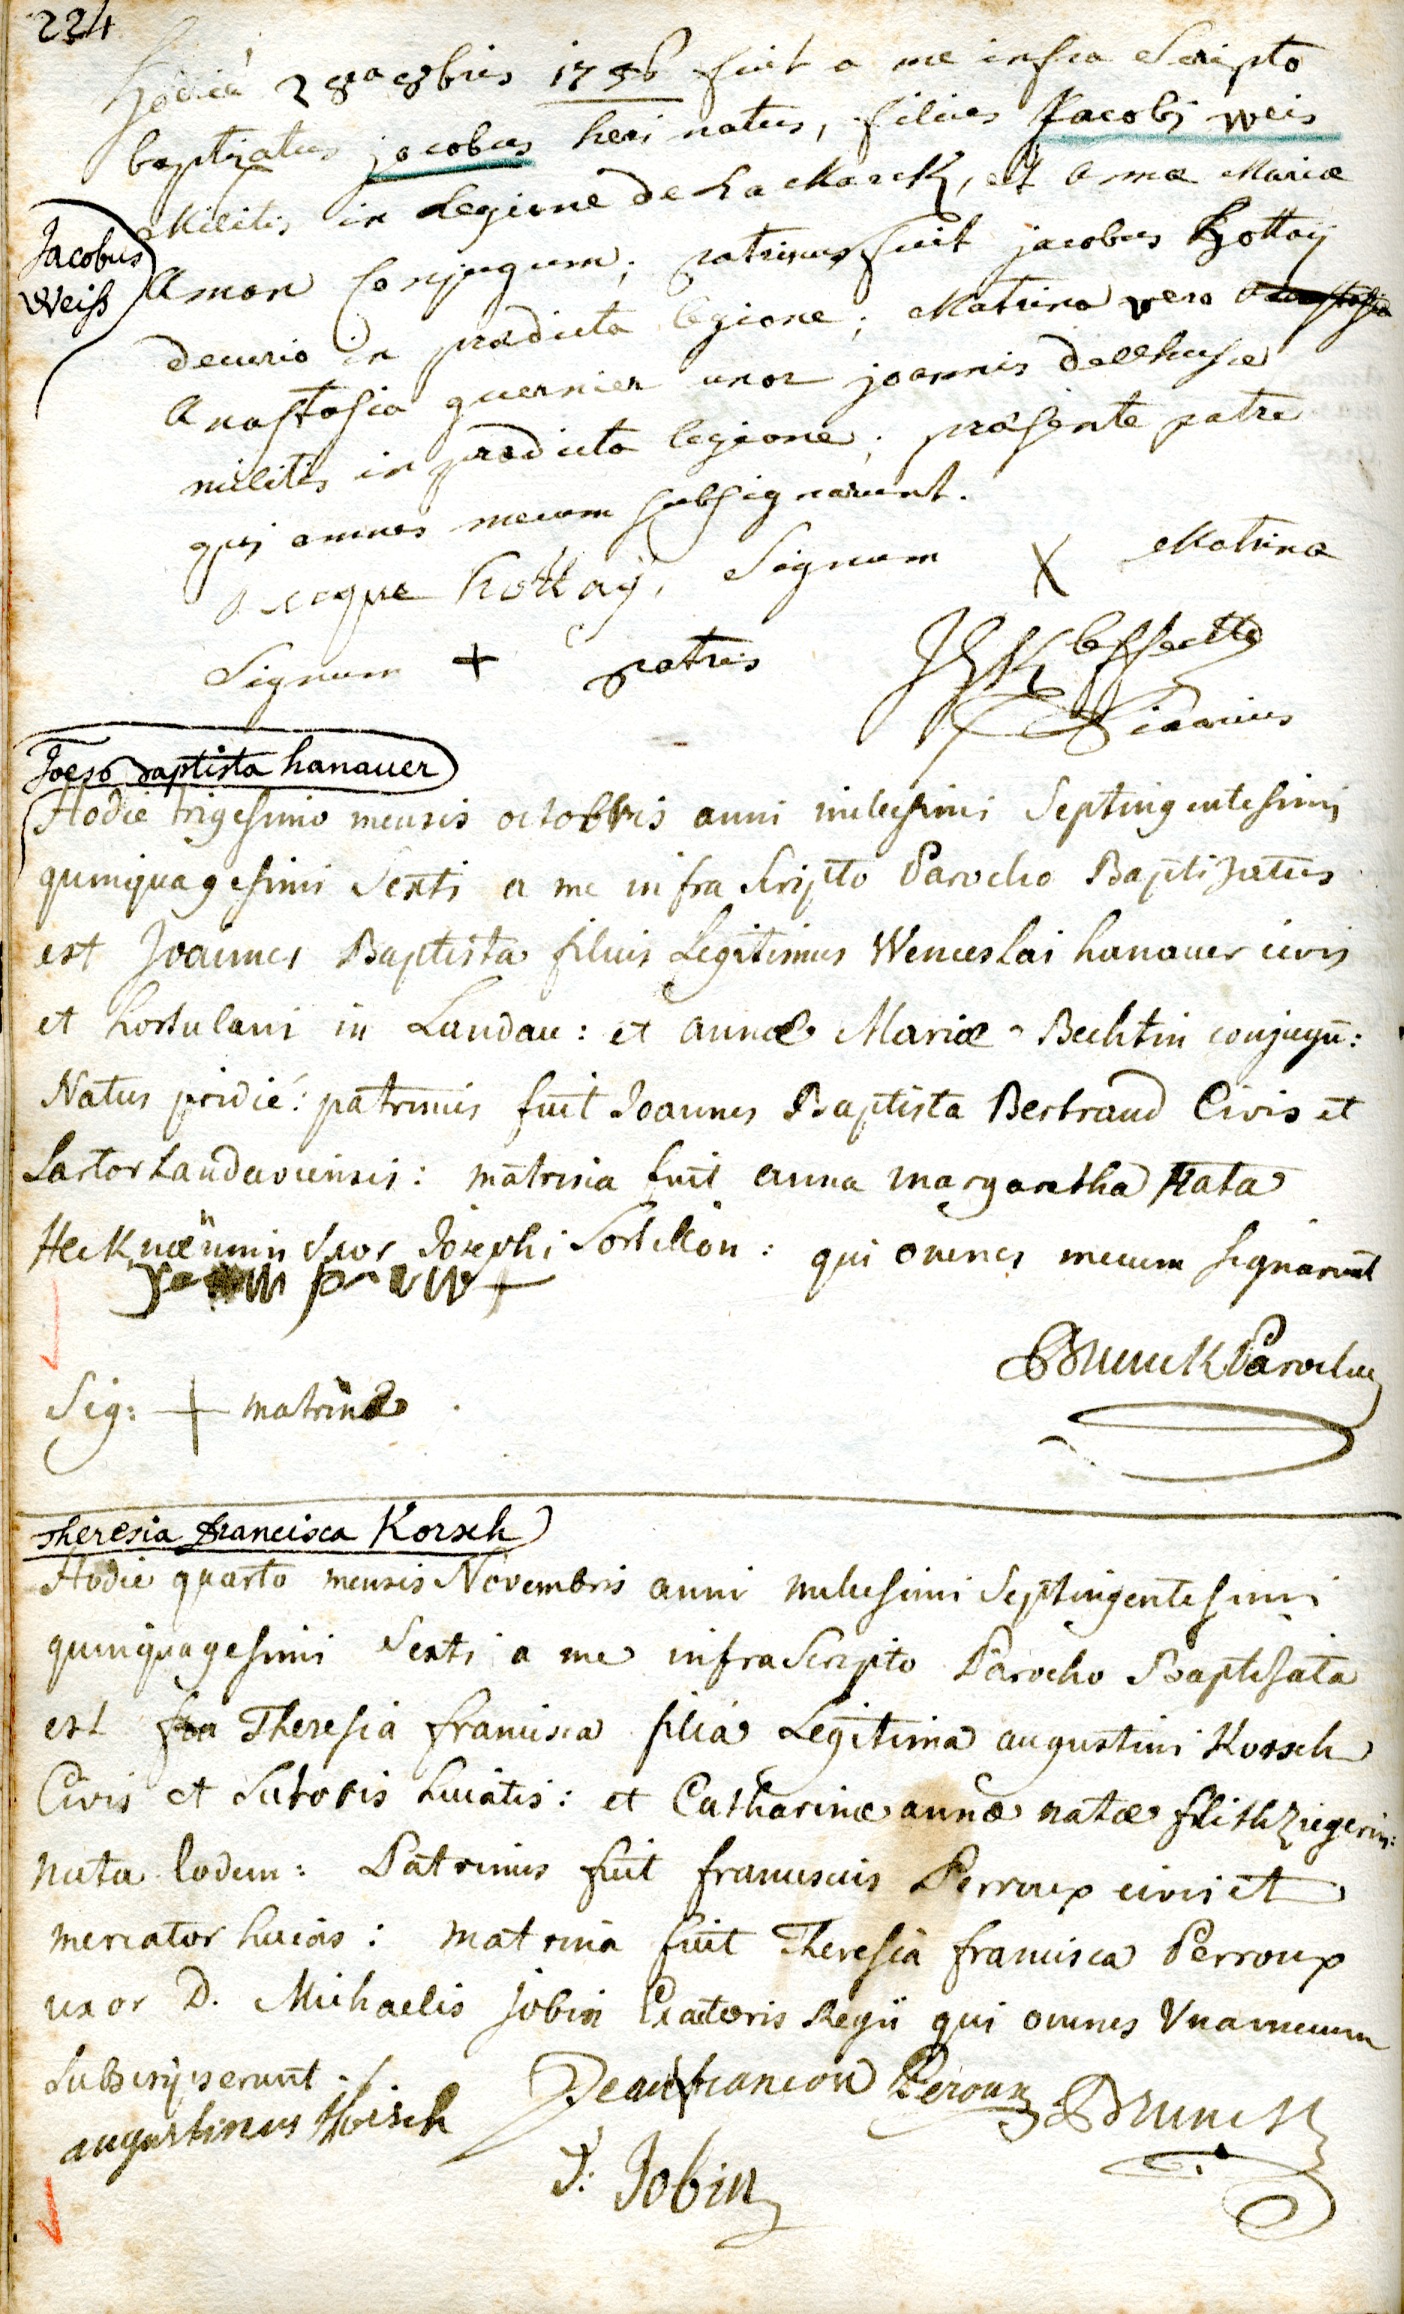 224
Hodie 28va 8bris 1756 fuit a me infra Scripto
baptizatus jacobus heri natus, filius Jacobi weis
Militis in Legione de La Marck, et Annæ Mariæ
Amon Conjugum; patrinus fuit jacobus Kottaÿ
decurio in prædicta legione; Matrina vero
Anastasia guernier uxor joannis
militis in prædicta legione; præsente patre
qui omnes mecum subsignarunt.
Jacobus
Weiß
Jacque Kottaÿ, Signum X Matrinæ
Signum + patris
Vicarius
Joes Baptista hanauer
Hodie trigesimo mensis octobris anni millesimi Septingentesimi
quinquagesimi Sexti a me infra Scripto Parocho Baptizatus
est Joannes Baptista filius Legitimus Wenceslai hanauer civis
et hortulani in Landau: et annæ Mariæ Bechtin conjugū:
Natus pridié: patrinus fuit Joannes Baptista Bertrand Civis et
Sartor Landaviensis: matrina fuit anna margaretha Nata
Hecknæmin Uxor Josephi Sortillon: qui omnes mecum signarunt
Brunck Parochus
Sig: + matrinæ
Theresia francisca Korsch
Hodie quarto mensis Novembris anni millesimi Septingentesimi
quinquagesimi Sexti a me infra Scripto Parocho Baptisata
est Theresia francisca filia Legitima augustini Korsch
Civis et Sutoris huiatis: et Catharinæ annæ natæ
nata Eodem: Patrinus fuit franciscus Perroux civis et
mercator huias: matrina fuit Theresia francisca Perroux
uxor D. Michaelis Jobin Exactoris Regii qui omnes Una mecum
subscripserunt
augustinus Korsch Jean francion Peroux Brunck
T: Jobin